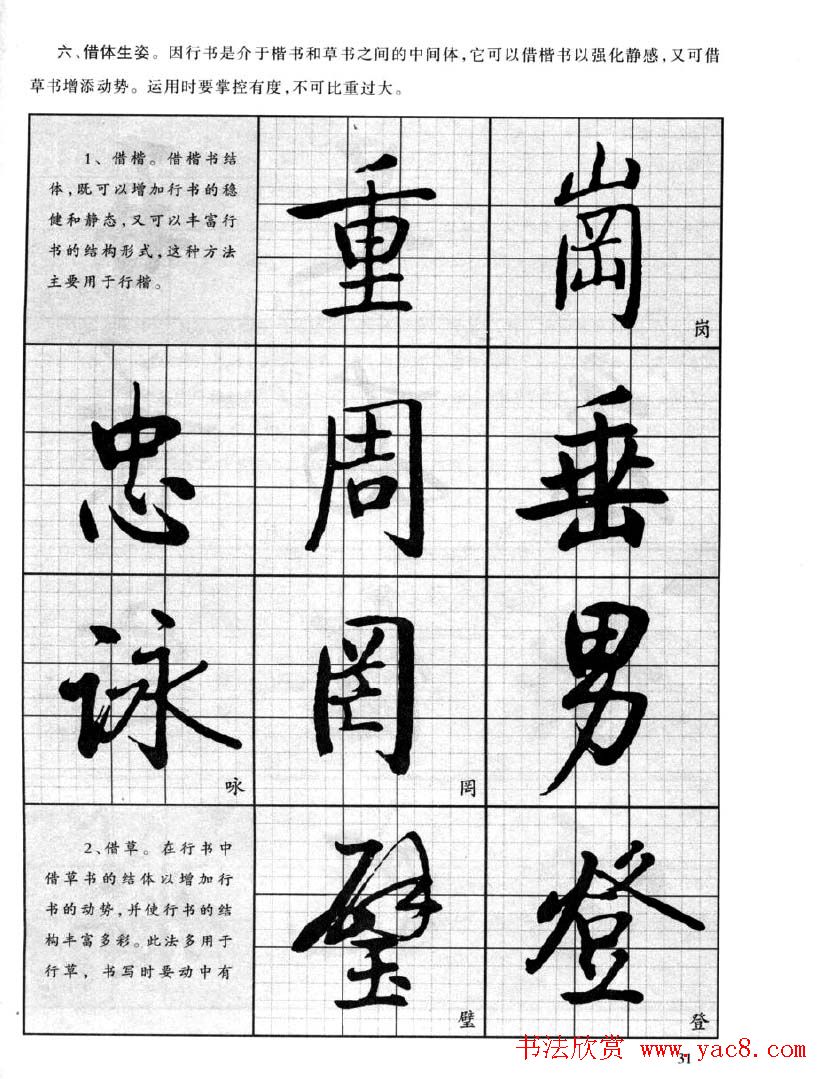 六、借体生姿。因行书是介于楷书和草书之间的中间体,它可以借楷书以强化静感,又可借
草书增添动势。运用时要掌控有度,不可比重过大。
1、借楷。借楷书结
体,既可以增加行书的稳
健和静态,又可以丰富行
书的结构形式,这种方法
主要用于行楷。
重
崗
岗
忠
周
垂
詠
咏
罔
罔
男
2、借草。在行书中
借草书的结体以增加行
书的动势,并使行书的结
构丰富多彩。此法多用于
行草,书写时要动中有
璧
璧
登
登
31
书法欣赏 www.yac8.com